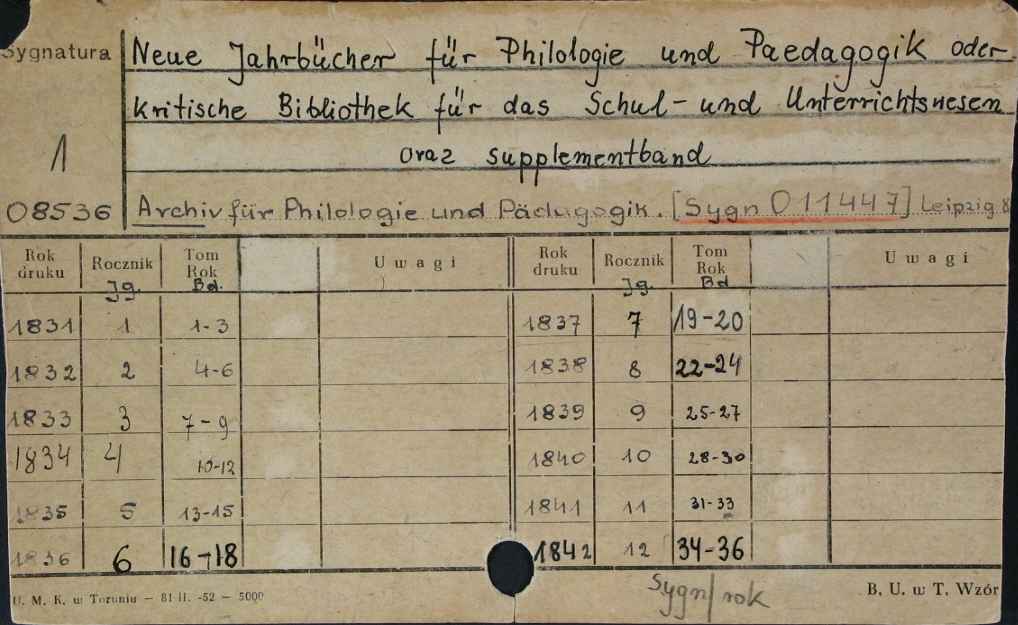 Sygnatura
Neue Jahrbücher für Philologie und Paedagogik oder
kritische Bibliothek für das Schul- und Unterrichtswesen
1
oraz supplementband
08536
Archiv für Philologie und Pädagogik. [Sygn 011447] Leipzig 8
Rok druku Rocznik Tom Rok Uwagi Rok druku Rocznik Tom Rok Uwagi
Jg. Bd. Jg. Bd
1831 1 1-3 1837 7 19-20
1832 2 4-6 1838 8 22-24
1833 3 7-9 1839 9 25-27
1834 4 10-12 1840 10 28-30
1835 5 13-15 1841 11 31-33
1836 6 16-18 1842 12 34-36
U. M. K. w Toruniu — 81 II. -52 — 5000
Sygn/rok
B. U. w T. Wzór